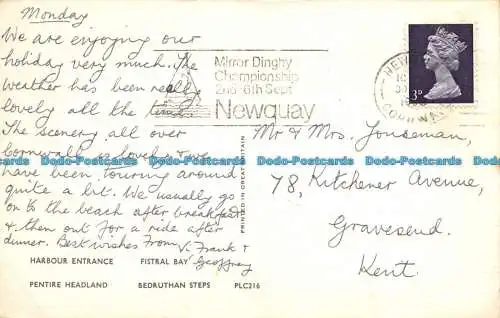 Monday
We are enjoying our
holiday very much. The
weather has been really
lovely all the time.
The scenery all over
Cornwall is lovely & we
have been touring around
quite a lot. We usually go
on to the beach after breakfast
& then out for a ride after
dinner. Best wishes from V. Frank &
Geoffrey
HARBOUR ENTRANCE FISTRAL BAY
PENTIRE HEADLAND BEDRUTHAN STEPS PLC216
PRINTED IN GREAT BRITAIN
Mirror Dinghy
Championship
2nd-6th Sept
Newquay
3D
NEW
CORNWALL
Mr & Mrs. Jonseman,
78, Kitchener Avenue,
Gravesend.
Kent.
Dodo-Postcards Dodo-Postcards Dodo-Postcards Dodo-Postcards